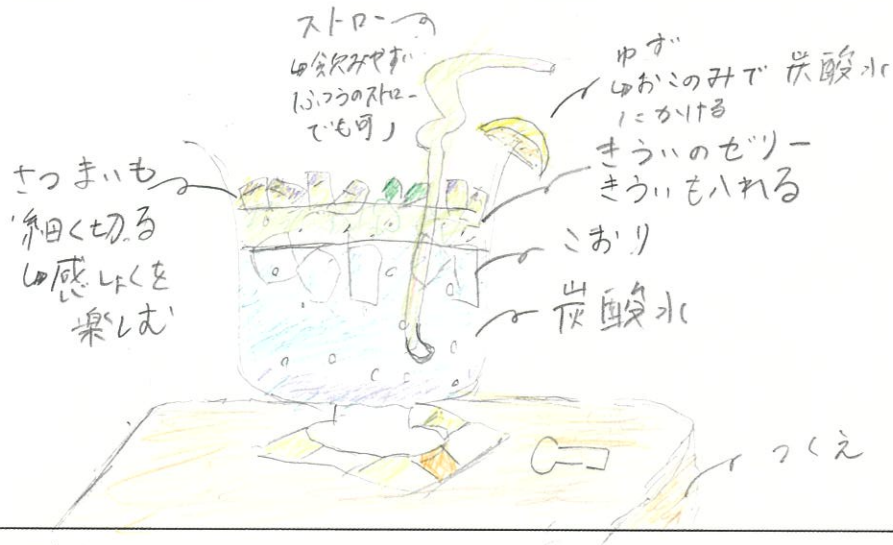 ストロー
↳飲みやすい
ふつうのストロー
でも可
ゆず
↳おこのみで炭酸水
にかける
きういのゼリー
きういも入れる
さつまいも
細く切る
↳感しょくを
楽しむ
こおり
炭酸水
つくえ